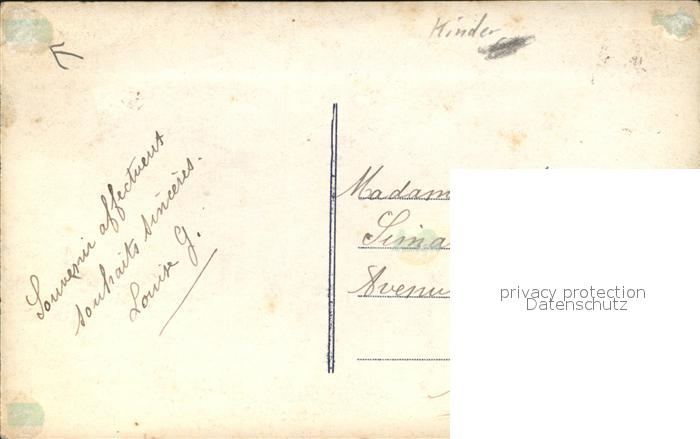 Kinder
Souvenir affectueux
souhaits sincères.
Louise G.
Madam
Sima
Avenu
privacy protection
Datenschutz